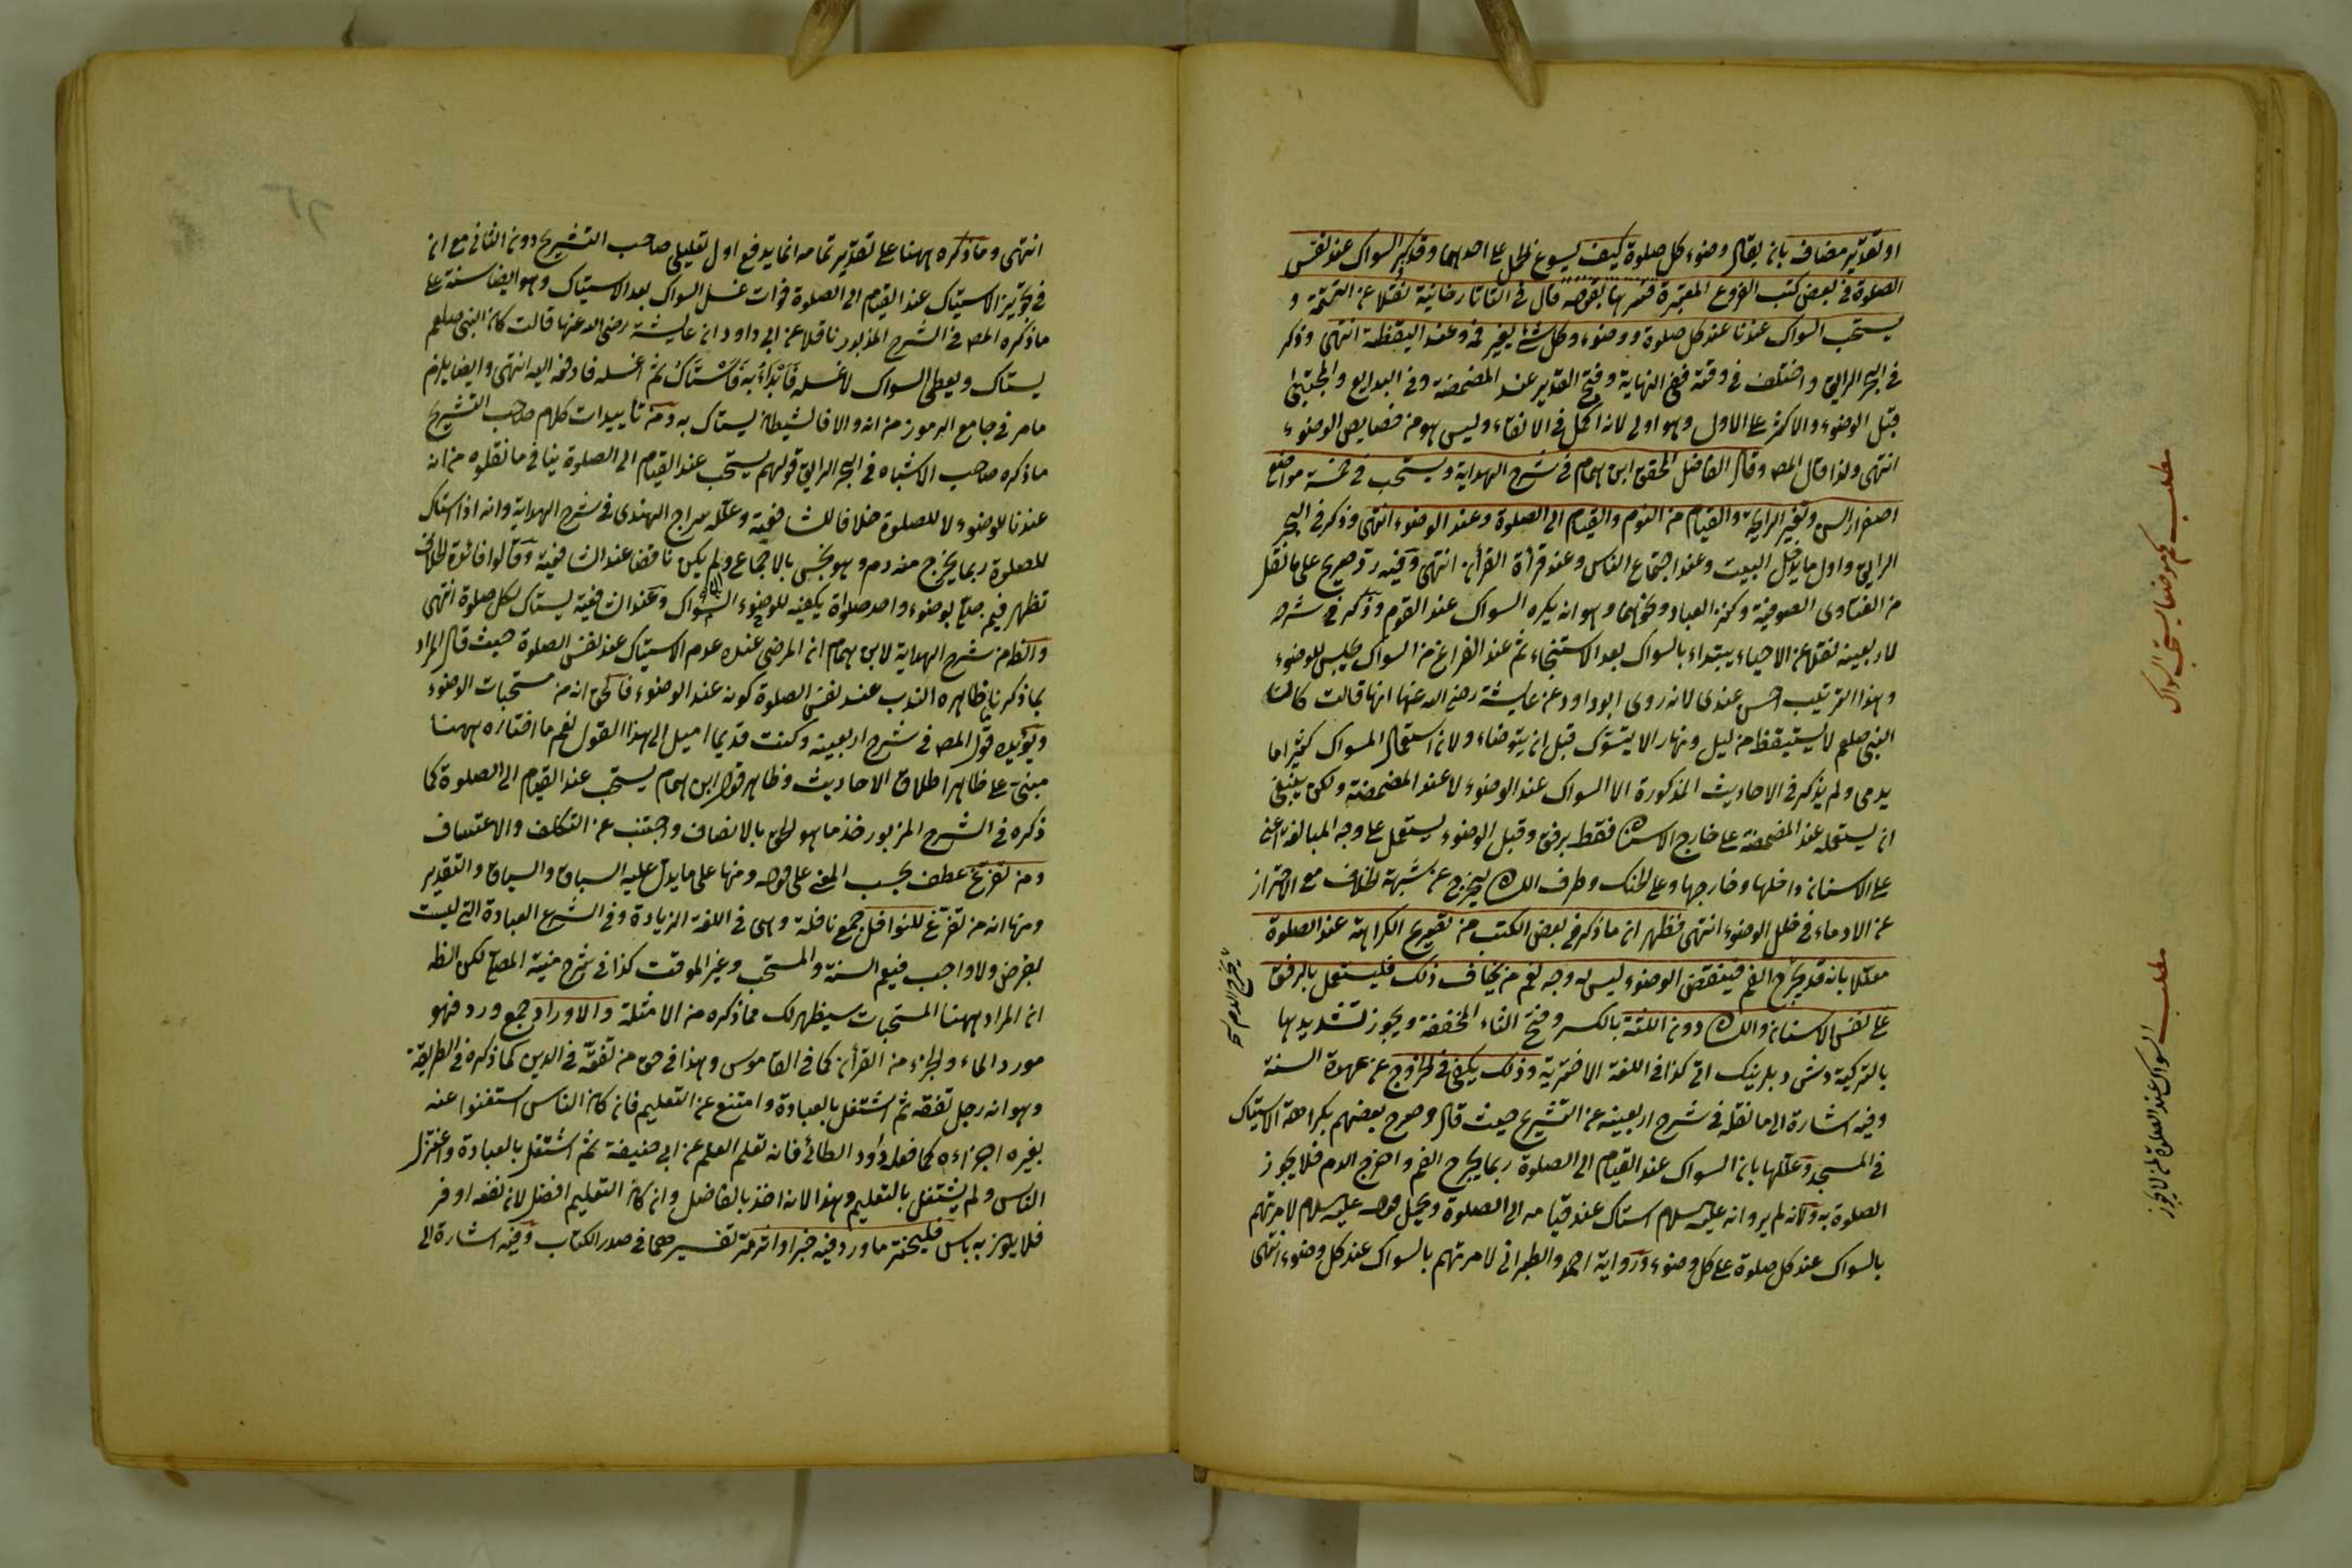 او تقدير مضاف بان يقال وضوء كل صلوة كيف يسوغ الحمل على احدهما وقد ذكر السواك عند نفس
الصلوة في بعض كتب الفروع المعتبرة قال في التاتارخانية نقلا عن التتمة و
يستحب السواك عندنا عند كل صلوة ووضوء وكل شئ يغير فمه وعند اليقظة انتهى وذكر
في البحر الرايق واختلف في وقته ففي النهاية وفتح القدير عند المضمضة وفي البدايع والمجتبى
قبل الوضوء والاكثر على الاول وهو اولى لانه اكمل في الانقاء وليس هو من خصايص الوضوء
انتهى ولذا قال المص وقال الفاضل المحقق ابن همام في شرح الهداية ويستحب في خمسة مواضع
اصفرار السن وتغير الرايحة والقيام من النوم والقيام الى الصلوة وعند الوضوء انتهى وذكر في البحر
الرايق واول ما يدخل البيت وعند اجتماع الناس وعند قرأة القرأن انتهى وفيه رد صريح على ما نقل
من الفتاوى الصوفية وكنز العباد ونحوهما وهو انه يكره السواك عند القوم وذكر في شرحه
لاربعينه نقلا عن الاحياء يبتداء بالسواك بعد الاستنجاء ثم عند الفراغ من السواك يجلس للوضوء
وهذا الترتيب احسن عندى لانه روى ابو داود عن عايشة رضى الله عنها انها قالت كان
النبي صلعم لا يستيقظ من ليل ونهار الا يتسوك قبل ان يتوضاء ولان استعمال المسواك كثيرا ما
يدمى ولم يذكر في الاحاديث المذكورة الا السواك عند الوضوء لا عند المضمضة ولكن ينبغي
ان يستعمله عند المضمضة على خارج الاسنان فقط برفق وقبل الوضوء يستعمل على وجه المبالغة اعنى
على الاسنان داخلها وخارجها وعلى الحنك وطرف اللسان ليخرج عن شبهة الخلاف مع الاحتراز
عن الادماء في خلل الوضوء انتهى فظهر ان ما ذكر في بعض الكتب من تصريح الكراهة عند الصلوة
معللا بانه قد يجرح الفم فينتقض الوضوء ليس له وجه نعم من يخاف ذلك فليستعمل بالرفق
على نفس الاسنان واللسان دون اللثة بالكسر وفتح الثاء المخففة ويجوز تشديدها
بالتركية دش دبلرينك اتى كذا في اللغة الاخترية وذلك يكفي في الخروج عن عهدة السنة
وفيه اشارة الى ما نقله في شرح اربعينه عن التشريح حيث قال وصرح بعضهم بكراهة الاستياك
في المسجد وعللها بان السواك عند القيام الى الصلوة ربما يجرح الفم واخرج الدم فلا يجوز
الصلوة به ولانه لم يرو انه عليه سلام استاك عند قيامه الى الصلوة ويحمل قوله عليه سلام لامرتهم
بالسواك عند كل صلوة على كل وضوء ورواية احمد والطبرانى لامرتهم بالسواك عند كل وضوء انتهى
مطلب كم موضعا يستحب السواك
مطلب السواك عند الصلوة
انتهى وما ذكره ههنا على تقدير تمامه انما يدفع اول تعليلى صاحب التشريح دون الثانى مع ان
في تجويز الاستياك عند القيام الى الصلوة فوات غسل السواك بعد الاستياك وهو ايضا سنة على
ما ذكره المص في الشرح المذبور ناقلا عن ابى داود ان عايشة رضى الله عنها قالت كان النبي صلعم
يستاك ويعطى السواك لاغسله فابداء به فاستاك ثم اغسله فادفعه اليه انتهى وايضا يلزم
ما مر في جامع الرموز من انه والا فالشيطان يستاك به ومن تأييدات كلام صاحب التشريح
ما ذكره صاحب الاشباه في البحر الرايق قولهم يستحب عند القيام الى الصلوة ينافي ما نقلوه من انه
عندنا للوضوء لا للصلوة خلافا للشافعية وعلله سراج الهندى في شرح الهداية وانه اذا استاك
للصلوة ربما يخرج منه دم وهو نجس بالاجماع وان لم يكن ناقضا عند الشافعية وقالوا فائدة الخلاف
تظهر فيمن صلى بوضوء واحد صلواة يكفيه السواك للوضوء وعند الشافعية يستاك لكل صلوة انتهى
والظ من شرح الهداية لابن همام ان المرضى عنده عدم الاستياك عند نفس الصلوة حيث قال المراد
بما ذكرنا ظاهره الندب عند نفس الصلوة كونه عند الوضوء فالحق انه من مستحبات الوضوء
ويؤيده قول المص في شرح اربعينه وكنت قديما اميل الى هذا القول نعم ما اختاره ههنا
مبنى على ظاهر اطلاق الاحاديث وظاهر قول ابن همام يستحب عند القيام الى الصلوة كما
ذكره في الشرح المزبور فخذ ما هو الحق بالانصاف واجتنب عن التكلف والاعتساف
ومن تفرغ عطف بحسب المعنى على قوله ومنها على ما يدل عليه السباق والسياق والتقدير
ومنها انه من تفرغ للنوافل جمع نافلة وهى في اللغة الزيادة وفي الشرع العبادة التى ليست
بفرض ولا واجب فيعم السنة والمستحب وغير الموقت كذا في شرح منية المصلى لكن الظ
ان المراد ههنا المستحبات سيظهر لك مما ذكره من الامثلة والاوراد جمع ورد فهو
مورد الماء والجزء من القرأن كما في القاموس وهذا في حق من تفقه في الدين كما ذكره في الطريقة
وهو انه رجل تفقه ثم اشتغل بالعبادة وامتنع عن التعليم فان كان الناس استغنوا عنه
بغيره اجزاءه كما فعله داود الطائى فانه تعلم العلم عن ابى حنيفة ثم اشتغل بالعبادة واعتزل
الناس ولم يشتغل بالتعليم وهذا لانه اخذ بالفاضل وان كان التعليم افضل لان نفعه اوفر
فلا يكون به باس فليختر ما ورد فيه خبر او اثر مر تفسيرهما في صدر الكتاب وفيه اشارة الى